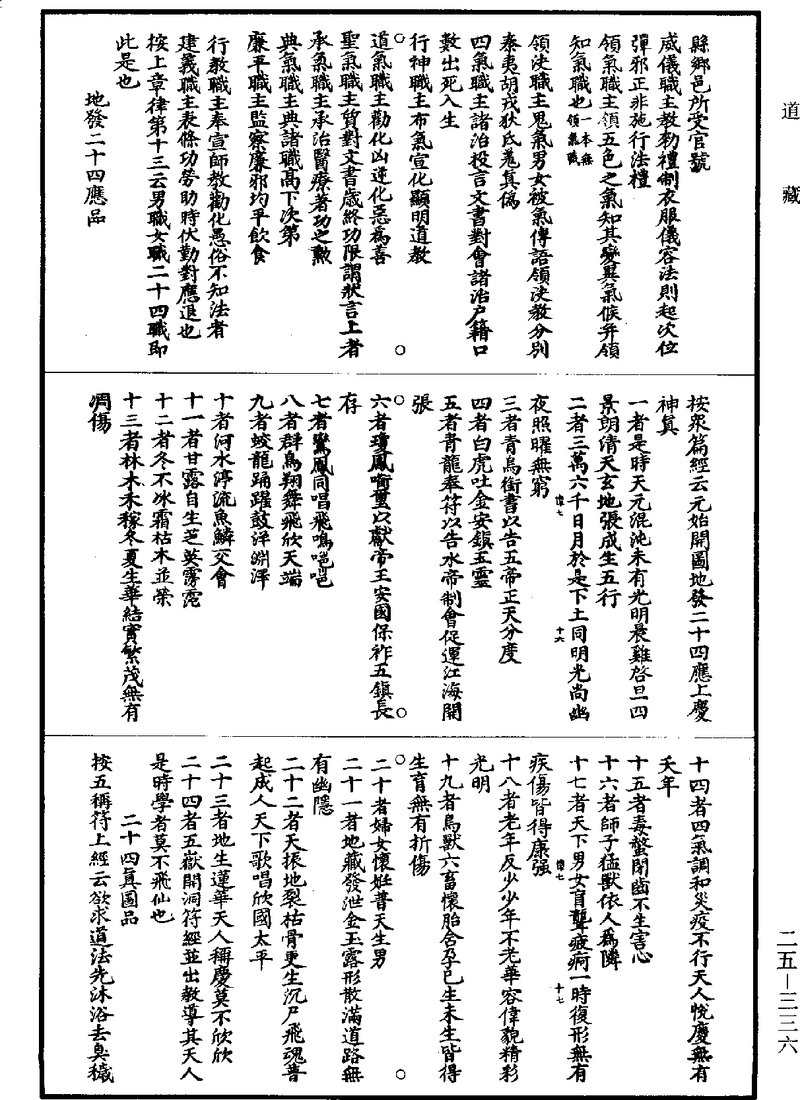 道藏
縣鄉邑所受官號
威儀職主教勑禮制衣服儀容法則起次位
彈邪正非施行法禮
領氣職主領五色之氣知其變異氣候并領
知氣職也一本無領氣職
領決職主鬼氣男女被氣傳語領決教分別
秦夷胡戎狄氐羌真偽
四氣職主諸治投言文書對會諸治戶籍口
數出死入生
行神職主布氣宣化顯明道教
道氣職主勸化凶逆化惡為善
聖氣職主質對文書歲終功限謂狀言上者
承氣職主承治醫療著功之勲
典氣職主典諸職高下次第
廉平職主監察廉邪均平飲食
行教職主奉宣師教勸化愚俗不知法者
建義職主表條功勞助時伏勤對應退也
按上章律第十三云男職女職二十四職即
此是也
地發二十四應品
按眾篇經云元始開圖地發二十四應上慶
神真
一者是時天元混沌未有光明晨雞啓旦四
景朗清天玄地張成生五行
二者三萬六千日月於是下土同明光尚幽
儀七
十六
夜照曜無窮
三者青鳥銜書以告五帝正天分度
四者白虎吐金安鎮玉靈
五者青龍奉符以告水帝制會促運江海開
張
六者瓊鳳喻璽以獻帝王安國保祚五鎮長
存
七者鸞鳳同唱飛鳴嗈嗈
八者群鳥翔舞飛欣天端
九者蛟龍踊躍鼓洋淵澤
十者河水渟流魚鱗交會
十一者甘露自生芝英霶霈
十二者冬不冰霜枯木並榮
十三者林木禾稼冬夏生華結實繁茂無有
凋傷
十四者四氣調和災疫不行天人悅慶無有
夭年
十五者毒螫閉齒不生害心
十六者師子猛獸依人為隣
十七者天下男女盲聾疲痾一時復形無有
儀七
十七
疾傷皆得康強
十八者老年反少少年不老華容偉貌精彩
光明
十九者鳥獸六畜懷胎含孕已生未生皆得
生育無有折傷
二十者婦女懷姙普天生男
二十一者地藏發泄金玉露形散滿道路無
有幽隱
二十二者天振地裂枯骨更生沉尸飛魂普
起成人天下歌唱欣國太平
二十三者地生蓮華天人稱慶莫不欣欣
二十四者五嶽開洞符經並出教導其天人
是時學者莫不飛仙也
二十四真圖品
按五稱符上經云欲求道法先沐浴去臭穢
二五—三三六